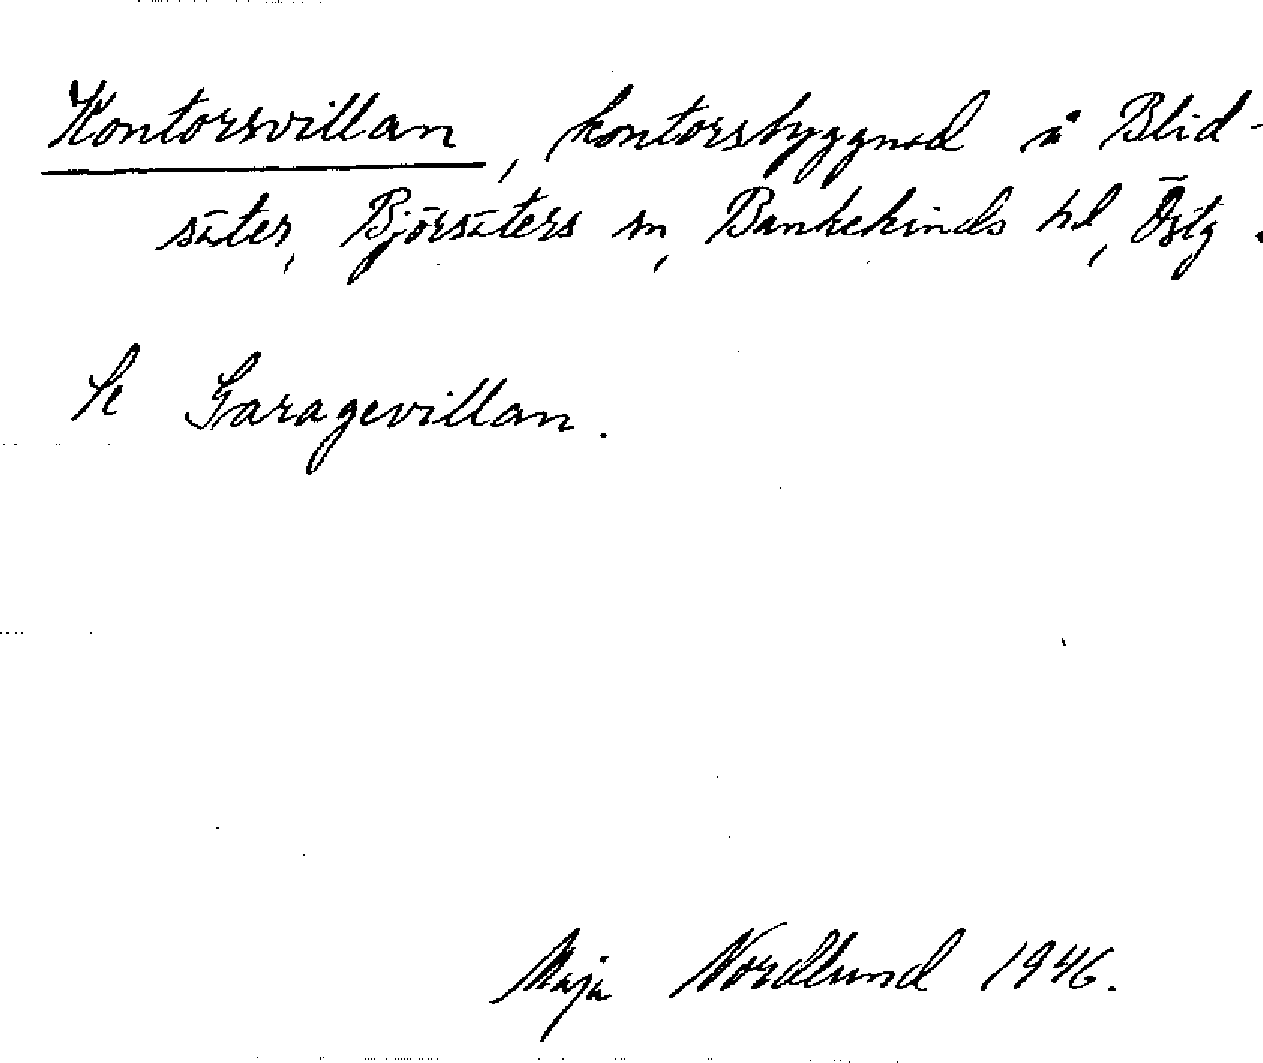 Kontorsvillan, kontorsbyggnad å Blid-
säter, Björsäters sn, Bankekinds hd, Östg.
Se Garagevillan.
Maja Nordlund 1946.